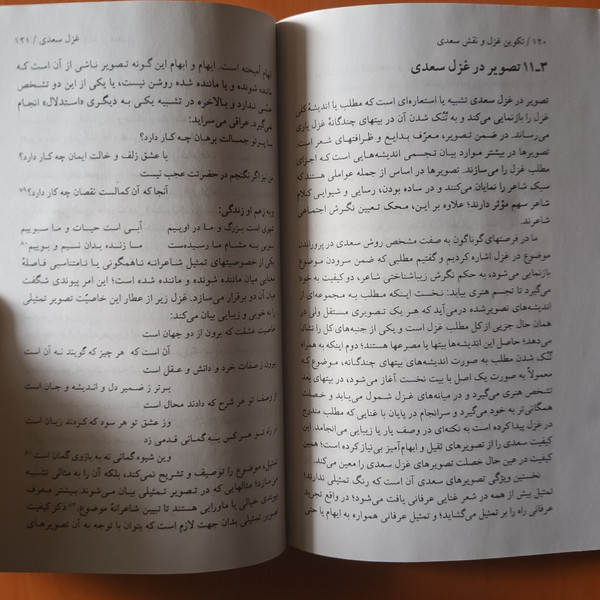 ۱۲۰ / تکوین غزل و نقش سعدی
۳ـ۱۱ تصویر در غزل سعدی
تصویر در غزل سعدی تشبیه یا استعاره‌ای است که مطلب یا اندیشهٔ کلی
غزل را بازنمایی می‌کند و به تُنُک شدن آن در بیتهای چندگانهٔ غزل یاری
می‌رساند. در ضمن تصویر، معرّف بدایع و ظرافتهای شعر است.
تصویرها در بیشتر موارد بیان تجسمی اندیشه‌هایی است که اجزای
مطلب غزل را می‌سازند. تصویرها در اساس از جمله عواملی هستند که
سبک شاعر را نمایان می‌کنند و در ساده بودن، رسایی و شیوایی کلام
شاعر سهم مؤثر دارند؛ علاوه بر این، محک تعیین نگرش اجتماعی
شاعرند.
ما در فرصتهای گوناگون به صفت مشخص روش سعدی در پروراندن
موضوع در غزل اشاره کردیم و گفتیم مطلبی که ضمن سرودن موضوع
بازنمایی می‌شود، به حکم نگرش زیباشناختی شاعر، دو کیفیت به خود
می‌گیرد تا تجسم هنری بیابد: نخست اینکه مطلب به مجموعه‌ای از
اندیشه‌های تصویرشده درمی‌آید که هر یک تصویری مستقل ولی در
همان حال جزیی از کل مطلب غزل است و یکی از جنبه‌های کل را نشان
می‌دهد؛ حاصل این اندیشه‌ها بیتها یا مصرعها هستند؛ دوم اینکه به همراه
تُنُک شدن مطلب به صورت اندیشه‌های بیتهای چندگانه، موضوع که
معمولاً به صورت یک اصل با بیت نخست آغاز می‌شود، در بیتهای بعد
تشخص هنری می‌گیرد و در میانه‌های غزل شمول می‌یابد و خصلت
همگانی‌تر به خود می‌گیرد و سرانجام در پایان با غنایی که مطلب مندرج
در غزل پیدا کرده است به نکته‌ای در وصف یار یا زیبایی می‌انجامد. این
کیفیت سعدی را از تصویرهای ثقیل و ابهام‌آمیز بی‌نیاز کرده است؛ همین
کیفیت در عین حال خصلت تصویرهای غزل سعدی را معین می‌کند.
نخستین ویژگی تصویرهای سعدی آن است که رنگ تمثیلی ندارند؛
تمثیل بیش از همه در شعر غنایی عرفانی یافت می‌شود؛ در واقع تجربهٔ
عرفانی راه را بر تمثیل می‌گشاید؛ و تمثیل عرفانی همواره به ایهام یا حتی
غزل سعدی / ۱۲۱
ابهام آمیخته است. ایهام و ابهام این گونه تصویر ناشی از آن است که
ماننده شونده و یا ماننده شده روشن نیست، یا یکی از این دو تشخص
حسّی ندارد و بالاخره در تشبیه یکی به دیگری «استدلال» انجام
می‌گیرد. عراقی می‌سراید:
با پرتو جمالت برهان چه کار دارد؟
با عشق زلف و خالت ایمان چه کار دارد؟
من نیز اگر نگنجم در حضرتت عجب نیست
آنجا که آن کمالست نقصان چه کار دارد؟⁷⁹
و به زعم او زندگی:
شهری است بزرگ و ما در اوییم آبی است حیات و ما سبوییم
بویی به مشام ما رسیده‌ست ما زنده بدان نسیم و بوییم⁸⁰
یکی از خصوصیتهای تمثیل شاعرانه ناهمگونی یا نامتناسبی فاصلهٔ
معنایی میان ماننده شونده و ماننده شده است؛ این امر پیوندی شگفت
میان آن دو برقرار می‌سازد. غزل زیر از عطار این خاصیّت تصویر تمثیلی
را به خوبی و زیبایی بیان می‌کند:
خاصیت عشقت که برون از دو جهان است
آن است که هر چیز که گویند نه آن است
برون ز صفات خرد و دانش و عقل است
برتر ز ضمیر دل و اندیشه و جان است
از وصف تو هر شرح که دادند محال است
وز عشق تو هر سود که کردند زیان است
در راه تو هر کس به گمانی قدمی زد
وین شیوه گمانی نه به بازوی گمان است⁸¹
تمثیل، موضوع را توصیف و تشریح نمی‌کند، بلکه آن را به مثالی تشبیه
می‌سازد؛ مثالهایی که در تصویر تمثیلی بیان می‌شوند بیشتر معرف
پیوندی خیالی یا ماورایی هستند تا تبیین شاعرانهٔ موضوع. ذکر کیفیت
تصویر تمثیلی بدان جهت لازم است که بتوان با توجه به آن تصویرهای